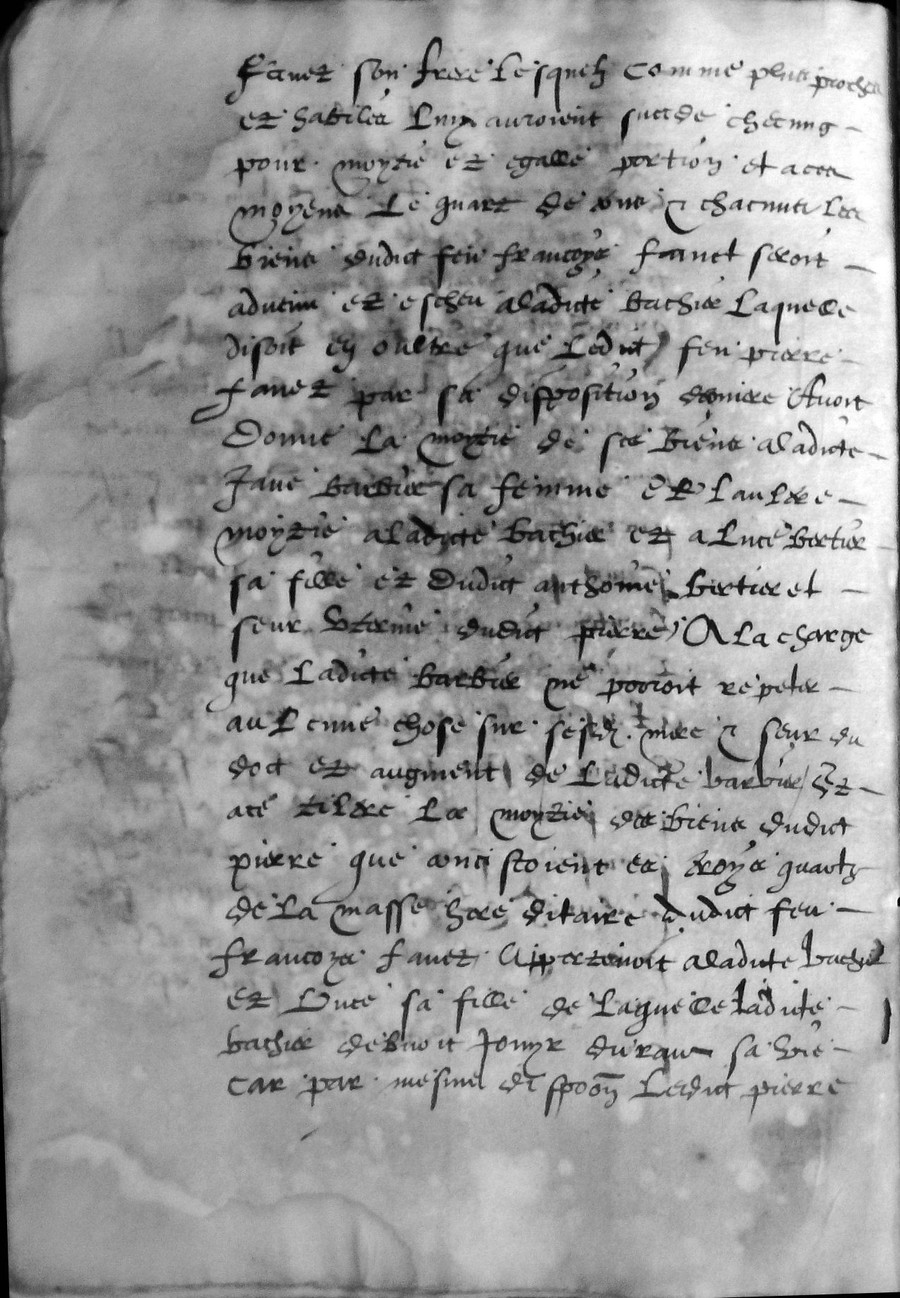 Favet son frere lesquelz comme plus proches
et habiles luy auroient succde checung
pour moytie et egalle portion et a ces
moyens le quart de tous & chacuns les
biens dudict feu francoys favet seroit
advenu et escheu a ladicte bachier laquelle
disoit en oultre que ledict feu pierre
favet par sa disposition derniere Avoit
Donne la moytie de ses biens a ladicte
Jane barbier sa femme et l aultre
moytie a ladicte bachier et a Luce bertier
sa fille et dudict anthoine bertier et
seur uterine dudict pierre A la charge
que ladicte barbier ne pouroit repeter
aulcune chose sur sesd. mere & seur du
doct et augment de ladicte barbier Et
a ce tiltre la moytie des biens dudict
pierre que concistoient es troys quartz
de la masse hereditaire dudict feu
francoys favet Appartenoit a ladicte bachier
et Luce sa fille de laquelle ladicte
bachier debvoit Jouyr durant sa vie
car par mesme dispoon ledict pierre